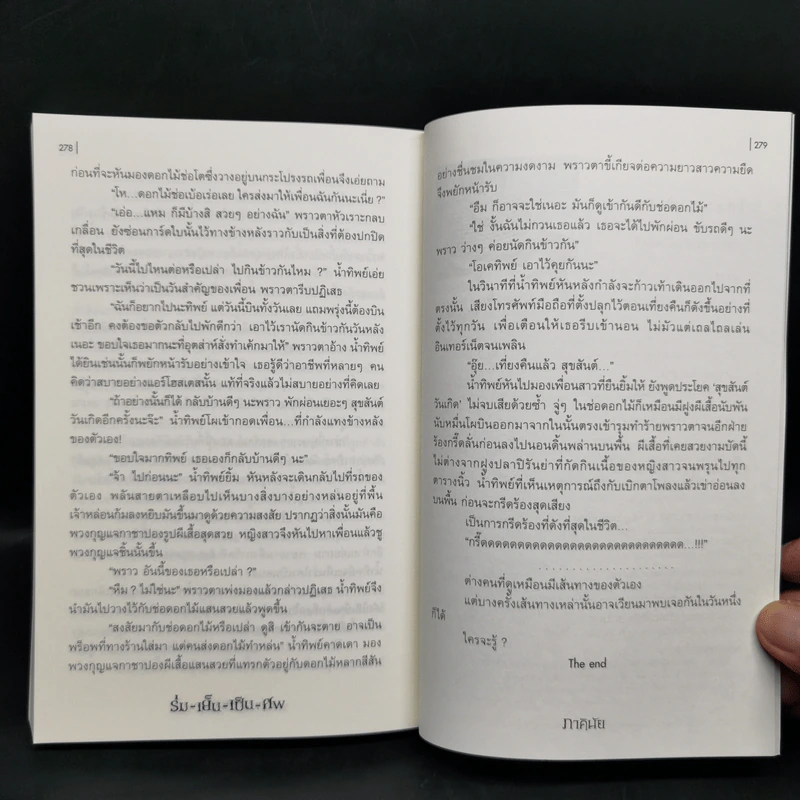 278
ก่อนที่จะหันมองดอกไม้ช่อโตซึ่งวางอยู่บนกระโปรงรถเพื่อนจึงเอ่ยถาม
“โห...ดอกไม้ช่อเบ้อเร่อเลย ใครส่งมาให้เพื่อนฉันกันนะเนี่ย ?”
“เอ่อ...แหม ก็มีบ้างสิ สวยๆ อย่างฉัน” พราวตาหัวเราะกลบ
เกลื่อน ยังซ่อนการ์ดใบนั้นไว้ทางข้างหลังราวกับเป็นสิ่งที่ต้องปกปิด
ที่สุดในชีวิต
“วันนี้ไปไหนต่อหรือเปล่า ไปกินข้าวกันไหม ?” น้ำทิพย์เอ่ย
ชวนเพราะเห็นว่าเป็นวันสำคัญของเพื่อน พราวตารีบปฏิเสธ
“ฉันก็อยากไปนะทิพย์ แต่วันนี้บินทั้งวันเลย แถมพรุ่งนี้ต้องบิน
เช้าอีก คงต้องขอตัวกลับไปพักดีกว่า เอาไว้เรานัดกินข้าวกันวันหลัง
เนอะ ขอบใจเธอมากนะที่อุตส่าห์สั่งทำเค้กมาให้” พราวตาอ้าง น้ำทิพย์
ได้ยินเช่นนั้นก็พยักหน้ารับอย่างเข้าใจ เธอรู้ดีว่าอาชีพที่หลายๆ คน
คิดว่าสบายอย่างแอร์โฮสเตสนั้น แท้ที่จริงแล้วไม่สบายอย่างที่คิดเลย
“ถ้าอย่างนั้นก็ได้ กลับบ้านดีๆ นะพราว พักผ่อนเยอะๆ สุขสันต์
วันเกิดอีกครั้งนะจ๊ะ” น้ำทิพย์โผเข้ากอดเพื่อน...ที่กำลังแทงข้างหลัง
ของตัวเอง!
“ขอบใจมากทิพย์ เธอเองก็กลับบ้านดีๆ นะ”
“จ้า ไปก่อนนะ” น้ำทิพย์ยิ้ม หันหลังจะเดินกลับไปที่รถของ
ตัวเอง พลันสายตาเหลือบไปเห็นบางสิ่งบางอย่างหล่นอยู่ที่พื้น
เจ้าหล่อนก้มลงหยิบมันขึ้นมาดูด้วยความสงสัย ปรากฏว่าสิ่งนั้นมันคือ
พวงกุญแจกาชาปองรูปผีเสื้อสุดสวย หญิงสาวจึงหันไปหาเพื่อนแล้วชู
พวงกุญแจชิ้นนั้นขึ้น
“พราว อันนี้ของเธอหรือเปล่า ?”
“หืม ? ไม่ใช่นะ” พราวตาเพ่งมองแล้วกล่าวปฏิเสธ น้ำทิพย์จึง
นำมันไปวางไว้กับช่อดอกไม้แสนสวยแล้วพูดขึ้น
“สงสัยมากับช่อดอกไม้หรือเปล่า ดูสิ เข้ากันจะตาย อาจเป็น
พร็อพที่ทางร้านใส่มา แต่คนส่งดอกไม้ทำหล่น” น้ำทิพย์คาดเดา มอง
พวงกุญแจกาชาปองผีเสื้อแสนสวยที่แทรกตัวอยู่กับดอกไม้หลากสีสัน
ร่ม-เย็น-เป็น-ศพ
279
อย่างชื่นชมในความงดงาม พราวตาขี้เกียจต่อความยาวสาวความยืด
จึงพยักหน้ารับ
“อืม ก็อาจจะใช่เนอะ มันก็ดูเข้ากันดีกับช่อดอกไม้”
“ใช่ งั้นฉันไม่กวนเธอแล้ว เธอจะได้ไปพักผ่อน ขับรถดีๆ นะ
พราว ว่างๆ ค่อยนัดกินข้าวกัน”
“โอเคทิพย์ เอาไว้คุยกันนะ”
ในวินาทีที่น้ำทิพย์หันหลังกำลังจะก้าวเท้าเดินออกไปจากที่
ตรงนั้น เสียงโทรศัพท์มือถือที่ตั้งปลุกไว้ตอนเที่ยงคืนก็ดังขึ้นอย่างที่
ตั้งไว้ทุกวัน เพื่อเตือนให้เธอรีบเข้านอน ไม่มัวแต่เถลไถลเล่น
อินเทอร์เน็ตจนเพลิน
“อุ๊ย...เที่ยงคืนแล้ว สุขสันต์...”
น้ำทิพย์หันไปมองเพื่อนสาวที่ยืนยิ้มให้ ยังพูดประโยค ‘สุขสันต์
วันเกิด’ ไม่จบเสียด้วยซ้ำ จู่ๆ ในช่อดอกไม้ก็เหมือนมีฝูงผีเสื้อนับพัน
นับหมื่นโผบินออกมาจากในนั้นตรงเข้ารุมทำร้ายพราวตาจนอีกฝ่าย
ร้องกรี๊ดลั่นก่อนลงไปนอนดิ้นพล่านบนพื้น ผีเสื้อที่เคยสวยงามบัดนี้
ไม่ต่างจากฝูงปลาปิรันย่าที่กัดกินเนื้อของหญิงสาวจนพรุนไปทุก
ตารางนิ้ว น้ำทิพย์ที่เห็นเหตุการณ์ถึงกับเบิกตาโพลงแล้วเข่าอ่อนลง
บนพื้น ก่อนจะกรีดร้องสุดเสียง
เป็นการกรีดร้องที่ดังที่สุดในชีวิต...
“กรี๊ดดดดดดดดดดดดดดดดดดดดดดดดดดดด...!!!”
. . . . . . . . . . . . . . .
ต่างคนที่ดูเหมือนมีเส้นทางของตัวเอง
แต่บางครั้งเส้นทางเหล่านั้นอาจเวียนมาพบเจอกันในวันหนึ่ง
ก็ได้
ใครจะรู้ ?
The end
ภาคินัย